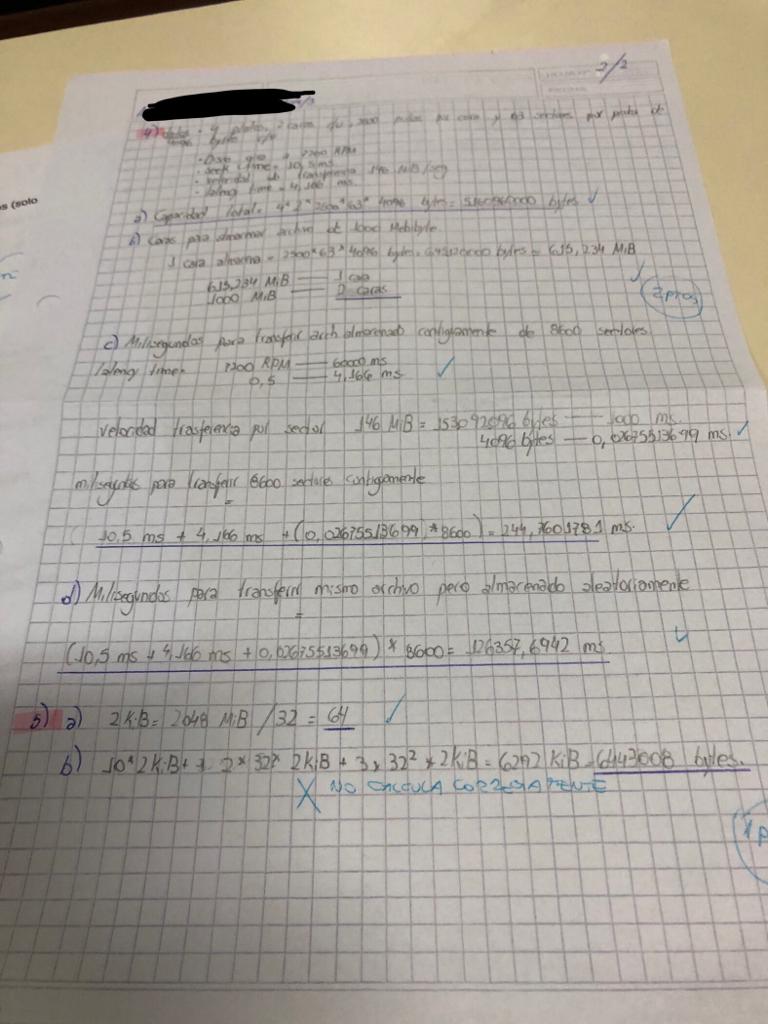 2/2
4) 4 platos, 2 caras c/u, 2500 pistas por cara y 63 sectores por pista de
4096 bytes c/u
• Disco gira a 7200 RPM
• seek time = 10,5 ms
• velocidad de transferencia 146 MiB/seg
• lateng time = 4,166 ms.
a) Capacidad total = 4*2*2500*63*4096 bytes = 5160960000 bytes ✓
b) Caras para almacenar archivo de 1000 Mebibyte
1 cara almacena = 2500*63*4096 bytes = 645120000 bytes = 615,234 MiB
s (solo
615,234 MiB — 1 cara
1000 MiB — 2 caras ✓
2 ptos
c) Milisegundos para transferir arch almacenado contiguamente de 8600 sectores
lateng time = 7200 RPM — 60000 ms
0,5 — 4,166 ms ✓
velocidad trasferencia por sector 146 MiB = 153092096 bytes — 1000 ms.
4096 bytes — 0,02675513699 ms. ✓
milisegundos para transferir 8600 sectores contiguamente
=
10,5 ms + 4,166 ms + (0,02675513699 * 8600) = 244,7601781 ms. ✓
d) Milisegundos para transferir mismo archivo pero almacenado aleatoriamente
=
(10,5 ms + 4,166 ms + 0,02675513699) * 8600 = 126357,6942 ms ✓
5) a) 2KiB = 2048 MiB /32 = 64 ✓
b) 10*2KiB + 2*32* 2KiB + 3*32² * 2KiB = 6292 KiB = 6443008 bytes.
X NO CALCULA CORRECTAMENTE